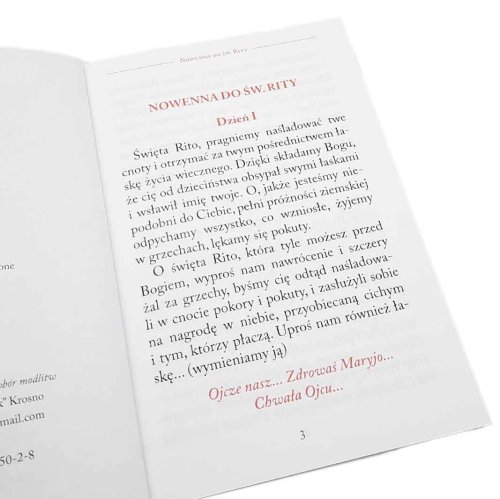 one
bór modlitw
k" Krosno
mail.com
50-2-8
Nowenna do św. Rity
NOWENNA DO ŚW. RITY
Dzień I
Święta Rito, pragniemy naśladować twe
cnoty i otrzymać za twym pośrednictwem ła-
skę życia wiecznego. Dzięki składamy Bogu,
że cię od dzieciństwa obsypał swymi łaskami
i wsławił imię twoje. O, jakże jesteśmy nie-
podobni do Ciebie, pełni próżności ziemskiej
odpychamy wszystko, co wzniosłe, żyjemy
w grzechach, lękamy się pokuty.
O święta Rito, która tyle możesz przed
Bogiem, wyproś nam nawrócenie i szczery
żal za grzechy, byśmy cię odtąd naśladowa-
li w cnocie pokory i pokuty, i zasłużyli sobie
na nagrodę w niebie, przyobiecaną cichym
i tym, którzy płaczą. Uproś nam również ła-
skę... (wymieniamy ją)
Ojcze nasz... Zdrowaś Maryjo...
Chwała Ojcu...
3